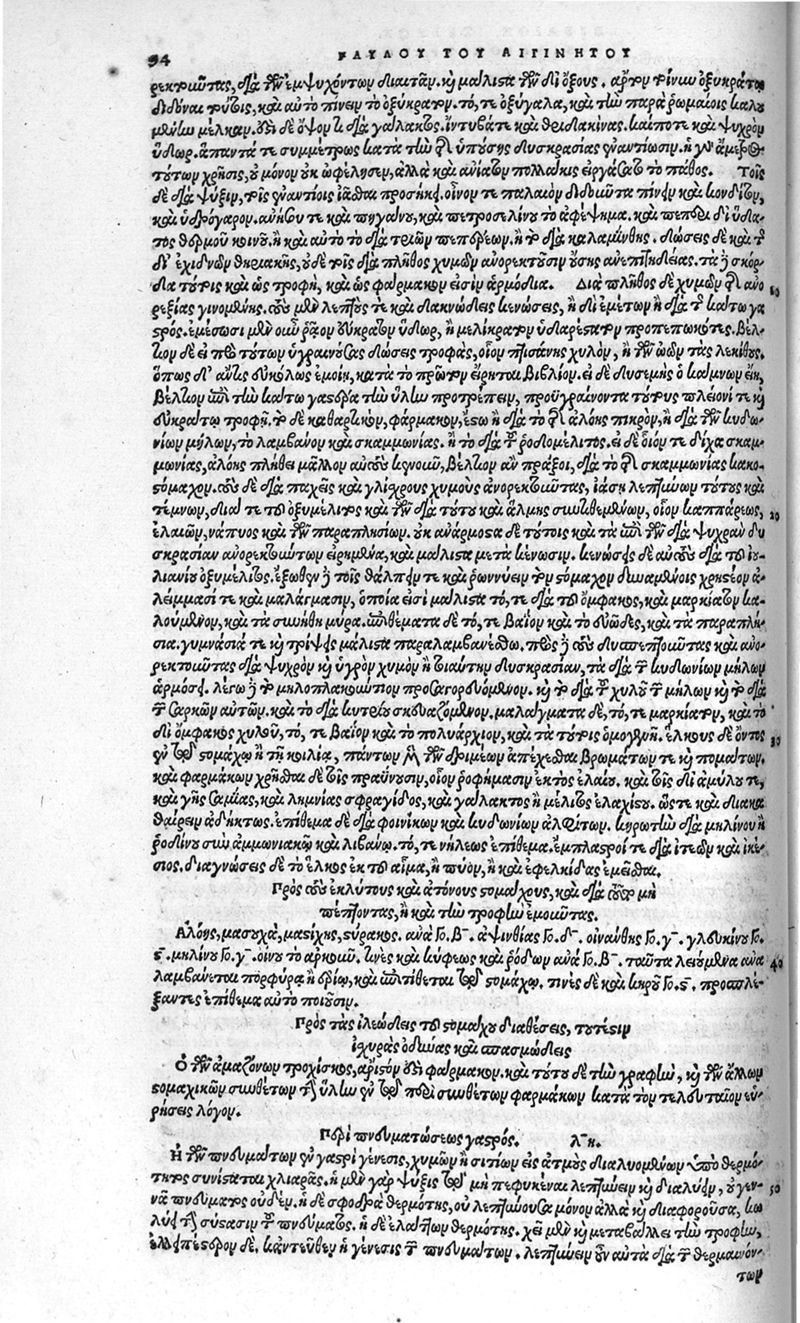 94 ΠΑΥΛΟΥ ΤΟΥ ΑΙΓΙΝΗΤΟΥ
διδόναι καὶ αὐτὸ πίνειν τὸ ὀξύκρατον. τό, τε ὀξύγαλα, καὶ τὴν παρὰ ῥωμαίοις καλου
μένην μέλκαν. διὰ γάλακτος. ἴντυβά τε καὶ θριδακίνας. καί ποτε καὶ ψυχρὸν
ὕδωρ. ἅπαντά τε συμμέτρως κατὰ τὴν τῆς ὑπούσης δυσκρασίας ἐναντίωσιν. ἡ γὰρ ἄμετρος
τούτων χρῆσις, οὐ μόνον οὐκ ὠφέλησεν, ἀλλὰ καὶ ἀνίατον πολλάκις εἰργάσατο τὸ πάθος. Τοῖς
δὲ διὰ ψύξιν, τοῖς ἐναντίοις ἰᾶσθαι προσήκει. οἶνόν τε παλαιὸν διδόντα πίνειν καὶ κονδῖτον,
καὶ ὑδρόγαρον. ἀνήθου τε καὶ πηγάνου, καὶ πετροσελίνου τὸ ἀφέψημα. καὶ πέπερι δι᾽ ὕδα-
τος θερμοῦ κοινοῦ. ἢ καὶ αὐτὸ τὸ διὰ τριῶν πεπέρεων. ἢ τὸ διὰ καλαμίνθης. δώσεις δὲ καὶ τῆς
δι᾽ ἐχιδνῶν θηριακῆς, οὐδὲ τοῖς διὰ πλῆθος χυμῶν ἀνορεκτοῦσιν οὔσης ἀνεπιτηδείας. τὰ δὲ σκόρ-
δα τούτοις καὶ ὡς τροφή, καὶ ὡς φάρμακον εἰσὶν ἁρμόδια. Διὰ πλῆθος δὲ χυμῶν τῆς ἀνο 10
ρεξίας γινομένης. τοὺς μὲν λεπτούς τε καὶ δακνώδεις κενώσεις, ἢ δι᾽ ἐμέτων ἢ διὰ τῆς κάτω γα
στρός. ἐμέσωσι μὲν οὖν ῥᾷον εὔκρατον ὕδωρ, ἢ μελίκρατον ὑδαρέστατον προπεπωκότες. βέλ-
τιον δὲ εἰ πρὸ τούτων ὑγραινούσας δώσεις τροφάς, οἷον πτισάνης χυλὸν, ἢ τῶν ὠῶν τὰς λεκίθους.
ὅπως δ᾽ ἄν τις εὐκόλως ἐμοίη, κατὰ τὸ πρῶτον εἴρηται βιβλίον. εἰ δὲ δυσεμὴς ὁ κάμνων εἴη,
βέλτιον ἐπὶ τὴν κάτω γαστέρα τὴν ὕλην προτρέπειν, προϋγραίνοντα τούτους πλείονί τε καὶ
εὐκράτῳ τροφῇ. τὸ δὲ καθαρτικὸν, φάρμακον, ἔστω ἢ διὰ τὸ τῆς ἀλόης πικρὸν, ἢ διὰ τῶν κυδω-
νίων μήλων, τὸ λαμβάνον καὶ σκαμμωνίας. ἢ τὸ διὰ τοῦ ῥοδομέλιτος. εἰ δὲ οἷόν τε δίχα σκαμ-
μωνίας, ἀλόης πλήθει μᾶλλον αὐτοὺς κενοῦν, βέλτιον ἂν πράξοι, διὰ τὸ τῆς σκαμμωνίας κακο-
στόμαχον. τοὺς δὲ διὰ παχεῖς καὶ γλίσχρους χυμοὺς ἀνορεκτοῦντας, ἰάσῃ λεπτύνων τούτους καὶ
τέμνων, διά τε τοῦ ὀξυμέλιτος καὶ τῶν διὰ τούτου καὶ ἅλμης συντιθεμένων, οἷον καππάρεως, 20
ἐλαιῶν, νάπυος καὶ τῶν παραπλησίων. οὐκ ἀνάρμοστα δὲ τούτοις καὶ τὰ ἐπὶ τῶν διὰ ψυχρὰν δυ
σκρασίαν ἀνορεκτούντων εἰρημένα, καὶ μάλιστα μετὰ κένωσιν. κενώσεις δὲ αὐτοὺς διὰ τοῦ ἰου-
λιανίου ὀξυμέλιτος. ἔξωθεν δὲ τοῖς θάλπειν τε καὶ ῥωννύειν τὸν στόμαχον δυναμένοις χρηστέον ἀ-
λείμμασί τε καὶ μαλάγμασιν, ὁποῖα εἰσὶ μάλιστα τό, τε διὰ τοῦ ὄμφακος, καὶ μαρκίατον κα-
λούμενον, καὶ τὰ συνήθη μύρα. ἐπιθέματα δὲ τό, τε βαῖον καὶ τὸ εὐῶδες, καὶ τὰ παραπλή-
σια. γυμνάσιά τε καὶ τρίψεις μάλιστα παραλαμβανέσθω. πρὸς δὲ τοὺς δυσπεπτοῦντας καὶ ἀνο-
ρεκτοῦντας διὰ ψυχρὸν καὶ ὑγρὸν χυμὸν ἢ τοιαύτην δυσκρασίαν, τὰ διὰ τῶν κυδωνίων μήλων
ἁρμόσει. λέγω δὲ τὸ μηλοπλακούντιον προσαγορευόμενον. καὶ τὸ διὰ τοῦ χυλοῦ τῶν μήλων καὶ τὸ διὰ
τῶν σαρκῶν αὐτῶν. καὶ τὸ διὰ κυτρίου σκευαζόμενον. μαλάγματα δέ, τό, τε μαρκίατον, καὶ τὸ
δι᾽ ὄμφακος χυλοῦ, τό, τε βαῖον καὶ τὸ πολυάρχιον, καὶ τὰ τούτοις ὁμογενῆ. ἕλκους δὲ ὄντος 30
ἐν τῷ στομάχῳ ἢ τῇ κοιλίᾳ, πάντων μὲν τῶν δριμέων ἀπέχεσθαι βρωμάτων τε καὶ πομάτων.
καὶ φαρμάκων χρῆσθαι δὲ τοῖς πραΰνουσιν, οἷον ῥοφήμασιν ἐκτὸς ἐλαίου. καὶ τοῖς δι᾽ ἀμύλου τε,
καὶ γῆς σαμίας, καὶ λημνίας σφραγῖδος, καὶ γάλακτος ἢ μέλιτος ἐλαχίστου. ὥστε καὶ διακα
θαίρειν ἀδήκτως. ἐπίθεμα δὲ διὰ φοινίκων καὶ κυδωνίων ἀλφίτων. κηρωτὴν διὰ μηλίνου ἢ
ῥοδίνου σὺν ἀμμωνιακῷ καὶ λιβάνῳ. τό, τε νήλεως ἐπίθεμα. ἔμπλαστροί τε διὰ ἰτεῶν καὶ ἰκέ-
σιος. διαγνώσεις δὲ τὸ ἕλκος ἐκ τοῦ αἷμα, ἢ πύον, ἢ καὶ ἐφελκίδας ἐμεῖσθαι.
Πρὸς τοὺς ἐκλύτους καὶ ἀτόνους στομάχους, καὶ διὰ τοῦτο μὴ
πέπτοντας, ἢ καὶ τὴν τροφὴν ἐμοῦντας.
Ἀλόης, μασουχᾶ, μαστίχης, στύρακος. ἀνὰ Γο. β. ἀψινθίας Γο. δ. οἰνάνθης Γο. γ. γλευκίνου Γο.
ϛ. μηλίνου Γο. γ. οἴνου τὸ ἀρκοῦν. τινὲς καὶ κύφεως καὶ ῥόδων ἀνὰ Γο. β. ταῦτα λειούμενα ἀνα 40
λαμβάνεται πορφύρᾳ ἢ ἐρίῳ, καὶ ἐπιτίθεται τῷ στομάχῳ. τινὲς δὲ καὶ κηροῦ Γο. ϛ. προσπλέ-
ξαντες ἐπίθεμα αὐτὸ ποιοῦσιν.
Πρὸς τὰς εἰλεώδεις τοῦ στομάχου διαθέσεις, τουτέστιν
ἰσχυρὰς ὀδύνας καὶ σπασμώδεις
Ὁ τῶν ἀμαζόνων τροχίσκος, ἄριστόν ἐστι φάρμακον. καὶ τοῦτο δὲ τὴν γραφὴν, καὶ τῶν ἄλλων
στομαχικῶν συνθέτων τὴν ὕλην ἐν τῷ περὶ συνθέτων φαρμάκων κατὰ τὸν τελευταῖον εὑ-
ρήσεις λόγον.
Περὶ πνευματώσεως γαστρός. λη.
Ἡ τῶν πνευμάτων ἐν γαστρὶ γένεσις, χυμῶν ἢ σιτίων εἰς ἀτμοὺς διαλυομένων ὑπὸ θερμό-
τητος συνίσταται χλιαρᾶς. ἡ μὲν γὰρ ψύξις τῷ μὴ πεφυκέναι λεπτύνειν καὶ διαλύειν, οὐ γεν- 50
νᾷ πνεύματος οὐδέν. ἡ δὲ σφοδρὰ θερμότης, οὐ λεπτύνουσα μόνον ἀλλὰ καὶ διαφοροῦσα, κω
λύει τὴν σύστασιν τοῦ πνεύματος. ἡ δὲ ἐλάττων θερμότης. χεῖ μὲν καὶ μεταβάλλει τὴν τροφὴν,
ἐλλιπέστερον δέ. κἀντεῦθεν ἡ γένεσις τῶν πνευμάτων. λεπτύνειν οὖν αὐτὰ διὰ τῶν θερμαινόν-
των